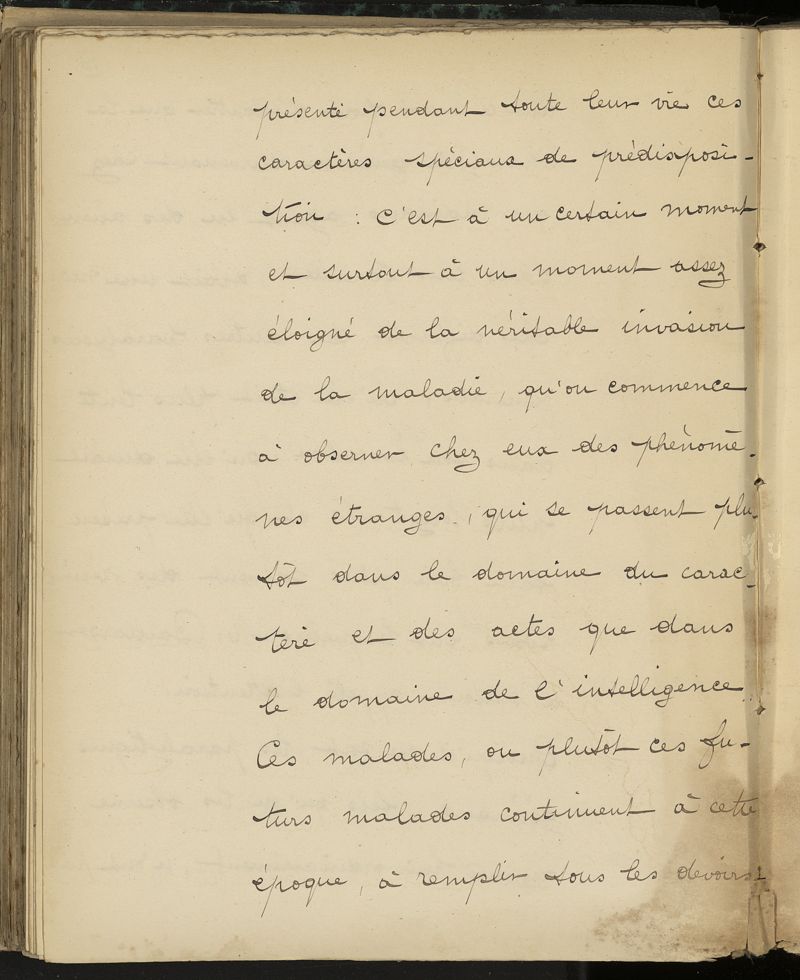 présenté pendant toute leur vie ces
caractères spéciaux de prédisposi-
tion : c'est à un certain moment
et surtout à un moment assez
éloigné de la véritable invasion
de la maladie, qu'on commence
à observer chez eux des phénomè-
nes étranges, qui se passent plu-
tôt dans le domaine du carac-
tère et des actes que dans
le domaine de l'intelligence.
Ces malades, ou plutôt ces fu-
turs malades continuent à cette
époque, à remplir tous les devoirs